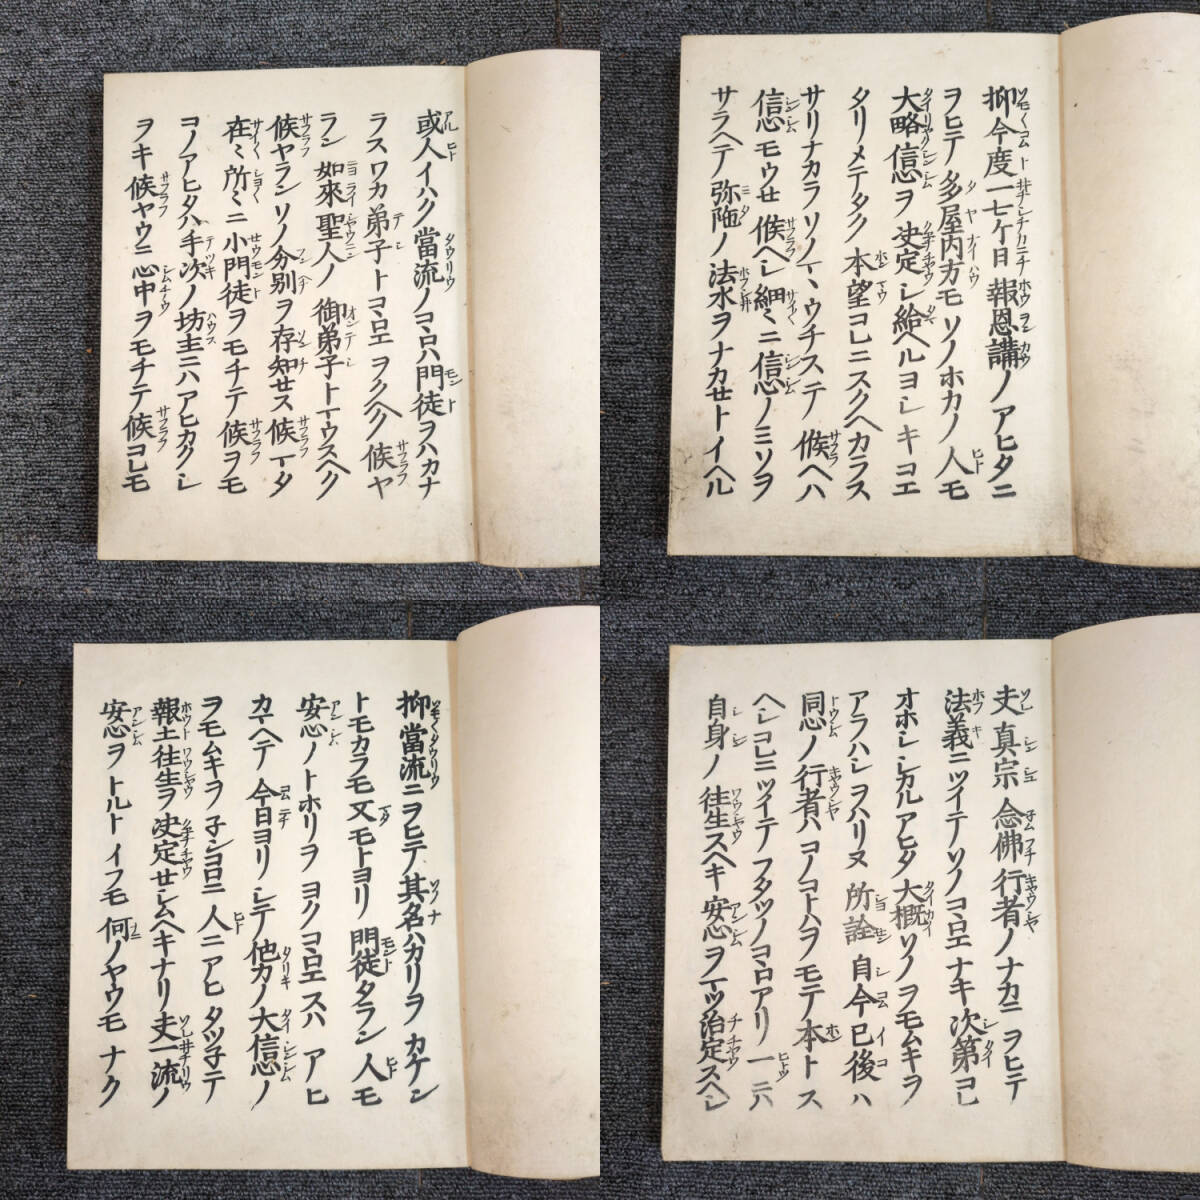 或人イハク當流ノコヽロハ門徒ヲハカナ
ラスワカ弟子トコヽロエヲクヘク候ヤ
ラン如來聖人ノ御弟子トマウスヘク
候ヤランソノ分別ヲ存知セス候マタ
在〻所〻ニ小門徒ヲモチテ候ヲモ
コノアヒタハ手次ノ坊主ニハアヒカクシ
ヲキ候ヤウニ心中ヲモチテ候コレモ
抑今度一七ケ日報恩講ノアヒタニ
ヲヒテ多屋内方モソノホカノ人モ
大略信心ヲ决定シ給ヘルヨシキコエ
タリメテタク本望コレニスクヘカラス
サリナカラソノマヽウチステ候ヘハ
信心モウせ候ヘシ細〻ニ信心ノミソヲ
サラヘテ弥陁ノ法水ヲナカせトイヘル
抑當流ニヲヒテ其名ハカリヲカケン
トモカラモ又モトヨリ門徒タラン人モ
安心ノトホリヲヨクコヽロエスハアヒ
カマヘテ今日ヨリシテ他力ノ大信心ノ
ヲモムキヲ子ンコロニ人ニアヒタツ子テ
報土往生ヲ决定せシムヘキナリ夫一流ノ
安心ヲトルトイフモ何ノヤウモナク
夫真宗念佛行者ノナカニヲヒテ
法義ニツイテソノコヽロエナキ次第コレ
オホシシカルアヒタ大概ソノヲモムキヲ
アラハシヲハリヌ所詮自今已後ハ
同心ノ行者ハコノコトハヲモテ本トス
ヘシコレニツイテフタツノコヽロアリ一ニハ
自身ノ往生スヘキ安心ヲマツ治定スヘシ